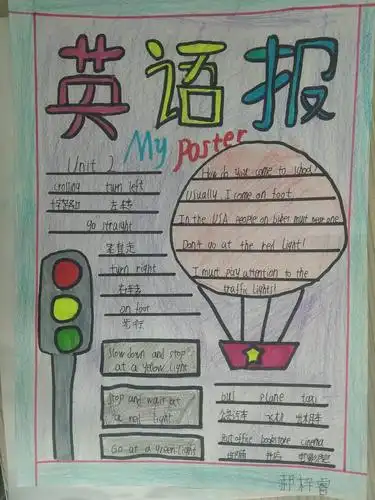 英语报
My Poster
Unit 2
crossing turn left
十字路口 左转
go straight
笔直走
turn right
右转
on foot
步行
Slow down and stop
at a yellow light
Stop and wait at
a red light
Go at a green light
How do you come to school
Usually I come on foot
In the USA people on bikes must wear one
Don't go at the red light!
I must pay attention to the
traffic lights!
bus plane taxi
公共汽车 飞机 出租车
Post office bookstore cinema
书店 电影院
郝梓睿